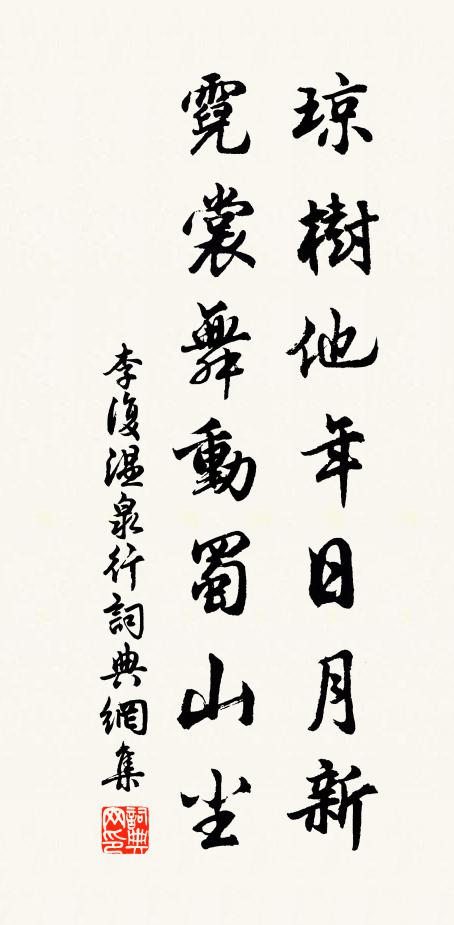 琼樹他年日月新
霓裳舞動蜀山尘
李復温泉行詞典網集
詞典网印